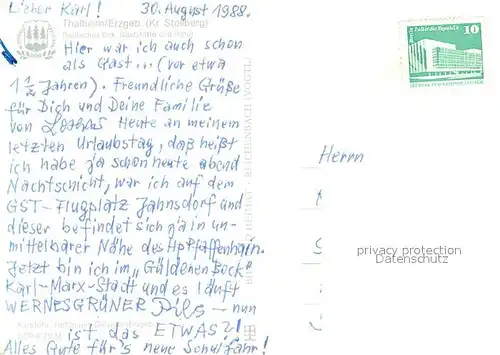 Lieber Karl! 30. August 1988.
Thalheim/Erzgeb. (Kr. Stollberg)
Hier war ich auch schon
als Gast... (vor etwa
1 1/2 Jahren). Freundliche Grüße
für Dich und Deine Familie
von Lothar Heute an meinem
letzten Urlaubstag, daß heißt
ich habe ja schon heute abend
Nachtschicht, war ich auf dem
GST-Flugplatz Jahnsdorf und
dieser befindet sich ja in un-
mittelbarer Nähe des Hp Pfaffenhain.
Jetzt bin ich im "Güldenen Bock"
Karl-Marx-Stadt und es läuft
WERNESGRÜNER Pils - nun
ist das ETWAS?!
Alles Gute für's neue Schuljahr!
10
Herrn
privacy protection
Datenschutz